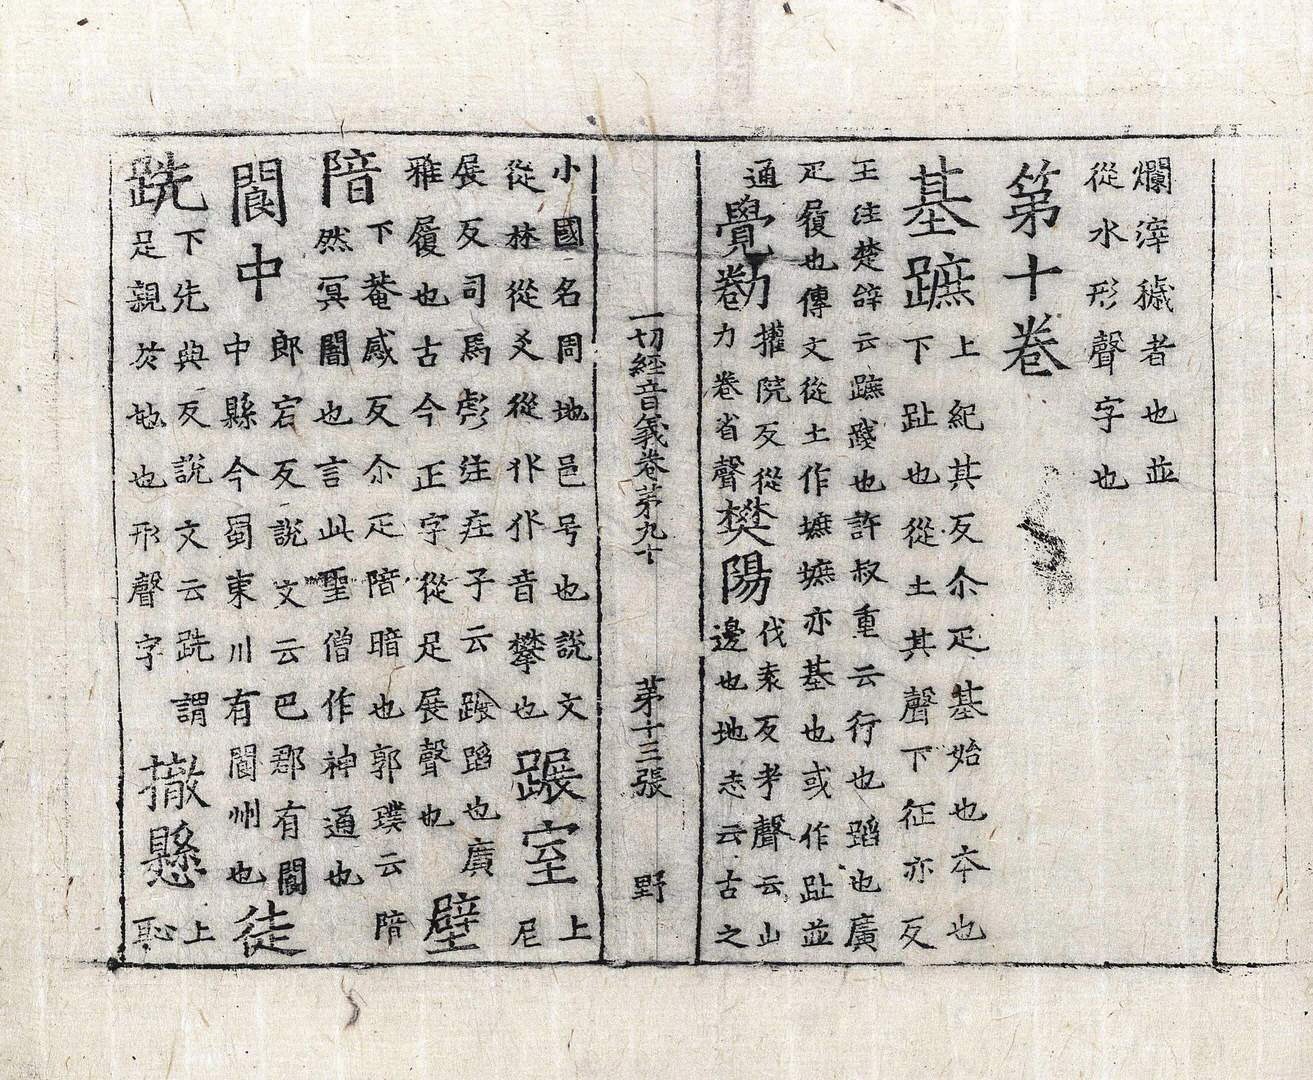 爛滓穢者也並
從水形聲字也
第十卷
基蹠
上紀其反尒疋基始也夲也
下趾也從土其聲下征亦反
王注楚辝云蹠踐也許叔重云行也蹈也廣
疋履也傳文從土作墌墌亦基也或作趾並
通
覺勌
攉院反從
力卷省聲
樊陽
伐袁反考聲云山
邊也地志云古之
一切經音義卷苐九十 苐十三張 野
小國名周地邑号也說文
從林從爻從𠬜𠬜音攀也
蹍室
上
尼
展反司馬彪注庄子云蹍蹈也廣
雅履也古今正字從足展聲也
壁
隌
下菴感反尒疋隌暗也郭璞云隌
然冥闇也言此聖僧作神通也
閬中
郎宕反說文云巴郡有閬
中縣今蜀東川有閬州也
徒
跣
下先典反說文云跣謂
足親於地也形聲字
撤懸
上
恥